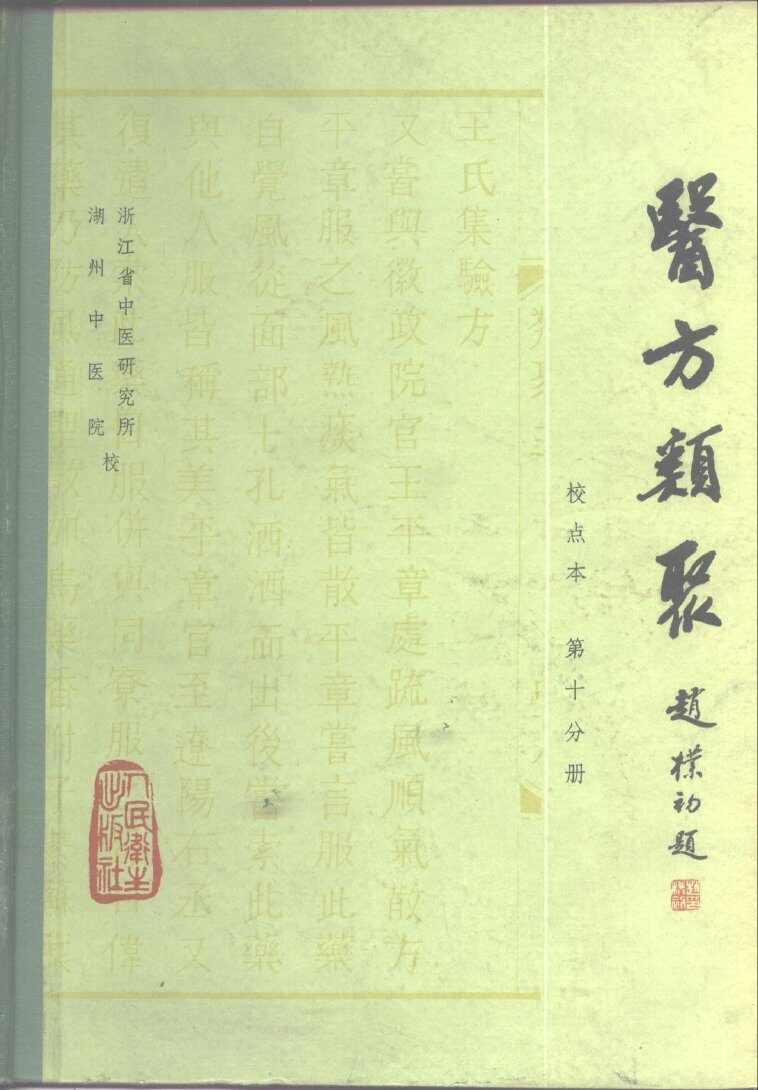 醫方類聚
趙樸初題
校点本 第十分册
王氏集驗方
又嘗與徽政院官王平章處疏風順氣散方
平章服之風熱痰氣皆散平章嘗言服此藥
自覺風從面部七孔洒洒而出後嘗索此藥
與他人服皆稱其美平章官至遼陽右丞又
復遣服併與同寮服偉
其藥乃防風通聖散加烏藥香附子
浙江省中医研究所
湖州中医院
校
人民衛生出版社